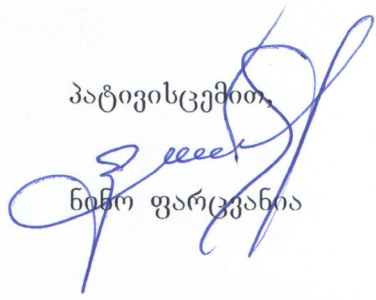 პატივისცემით,
ნინო ფარცვანია